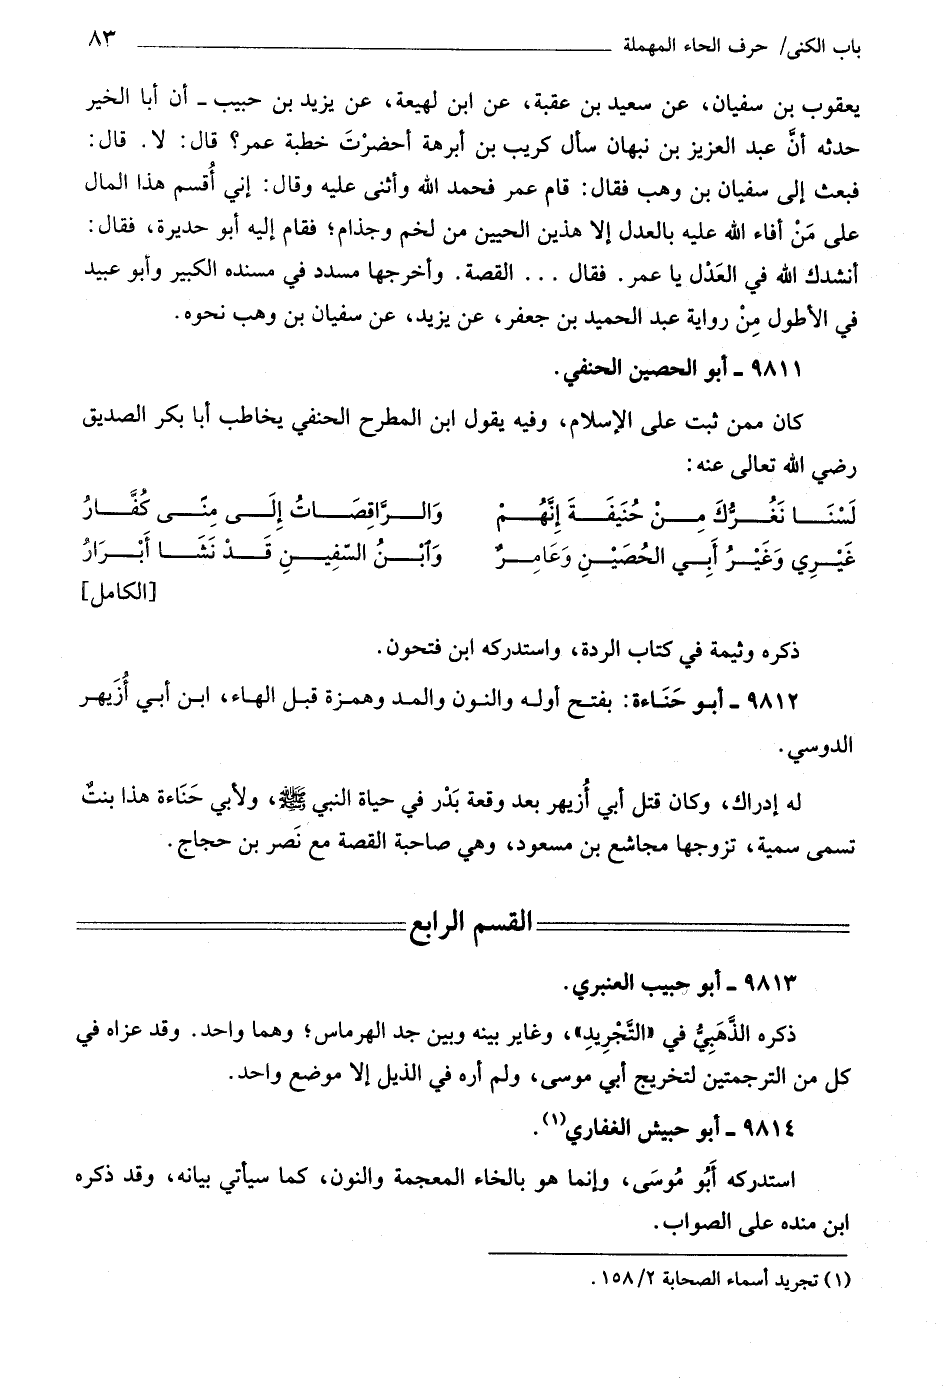 باب الكنى/ حرف الحاء المهملة ٨٣
يعقوب بن سفيان، عن سعيد بن عقبة، عن ابن لهيعة، عن يزيد بن حبيب ـ أن أبا الخير
حدثه أنَّ عبد العزيز بن نبهان سأل كريب بن أبرهة أحضرْتَ خطبة عمر؟ قال: لا. قال:
فبعث إلى سفيان بن وهب فقال: قام عمر فحمد الله وأثنى عليه وقال: إني أُقسم هذا المال
على مَنْ أفاء الله عليه بالعدل إلا هذين الحيين من لخم وجذام؛ فقام إليه أبو حديرة، فقال:
أنشدك الله في العَدْل يا عمر. فقال ... القصة. وأخرجها مسدد في مسنده الكبير وأبو عبيد
في الأطول مِنْ رواية عبد الحميد بن جعفر، عن يزيد، عن سفيان بن وهب نحوه.
٩٨١١ ـ أبو الحصين الحنفي.
كان ممن ثبت على الإسلام، وفيه يقول ابن المطرح الحنفي يخاطب أبا بكر الصديق
رضي الله تعالى عنه:
لَسْنَا نَغُرُّكَ مِنْ حُنَيفَةَ إِنَّهُمْ وَالرَّاقِصَاتُ إِلَى مِنًى كُفَّارُ
غَيْرِي وَغَيْرُ أَبِي الحُصَيْنِ وَعَامِرٌ وَٱبْنُ السَّفِينِ قَدْ نَشَا أَبْرَارُ
[الكامل]
ذكره وثيمة في كتاب الردة، واستدركه ابن فتحون.
٩٨١٢ ـ أبو حَنَاءة: بفتح أوله والنون والمد وهمزة قبل الهاء، ابن أبي أُزَيهر
الدوسي.
له إدراك، وكان قتل أبي أُزيهر بعد وقعة بَدْر في حياة النبي ﷺ، ولأبي حَنَاءة هذا بنتٌ
تسمى سمية، تزوجها مجاشع بن مسعود، وهي صاحبة القصة مع نَصر بن حجاج.
القسم الرابع
٩٨١٣ ـ أبو حبيب العنبري.
ذكره الذَّهَبِيُّ في «التَّجْرِيدِ»، وغاير بينه وبين جد الهرماس؛ وهما واحد. وقد عزاه في
كل من الترجمتين لتخريج أبي موسى، ولم أره في الذيل إلا موضع واحد.
٩٨١٤ ـ أبو حبيش الغفاري(١).
استدركه أَبُو مُوسَى، وإنما هو بالخاء المعجمة والنون، كما سيأتي بيانه، وقد ذكره
ابن منده على الصواب.
(١) تجريد أسماء الصحابة ١٥٨/٢.